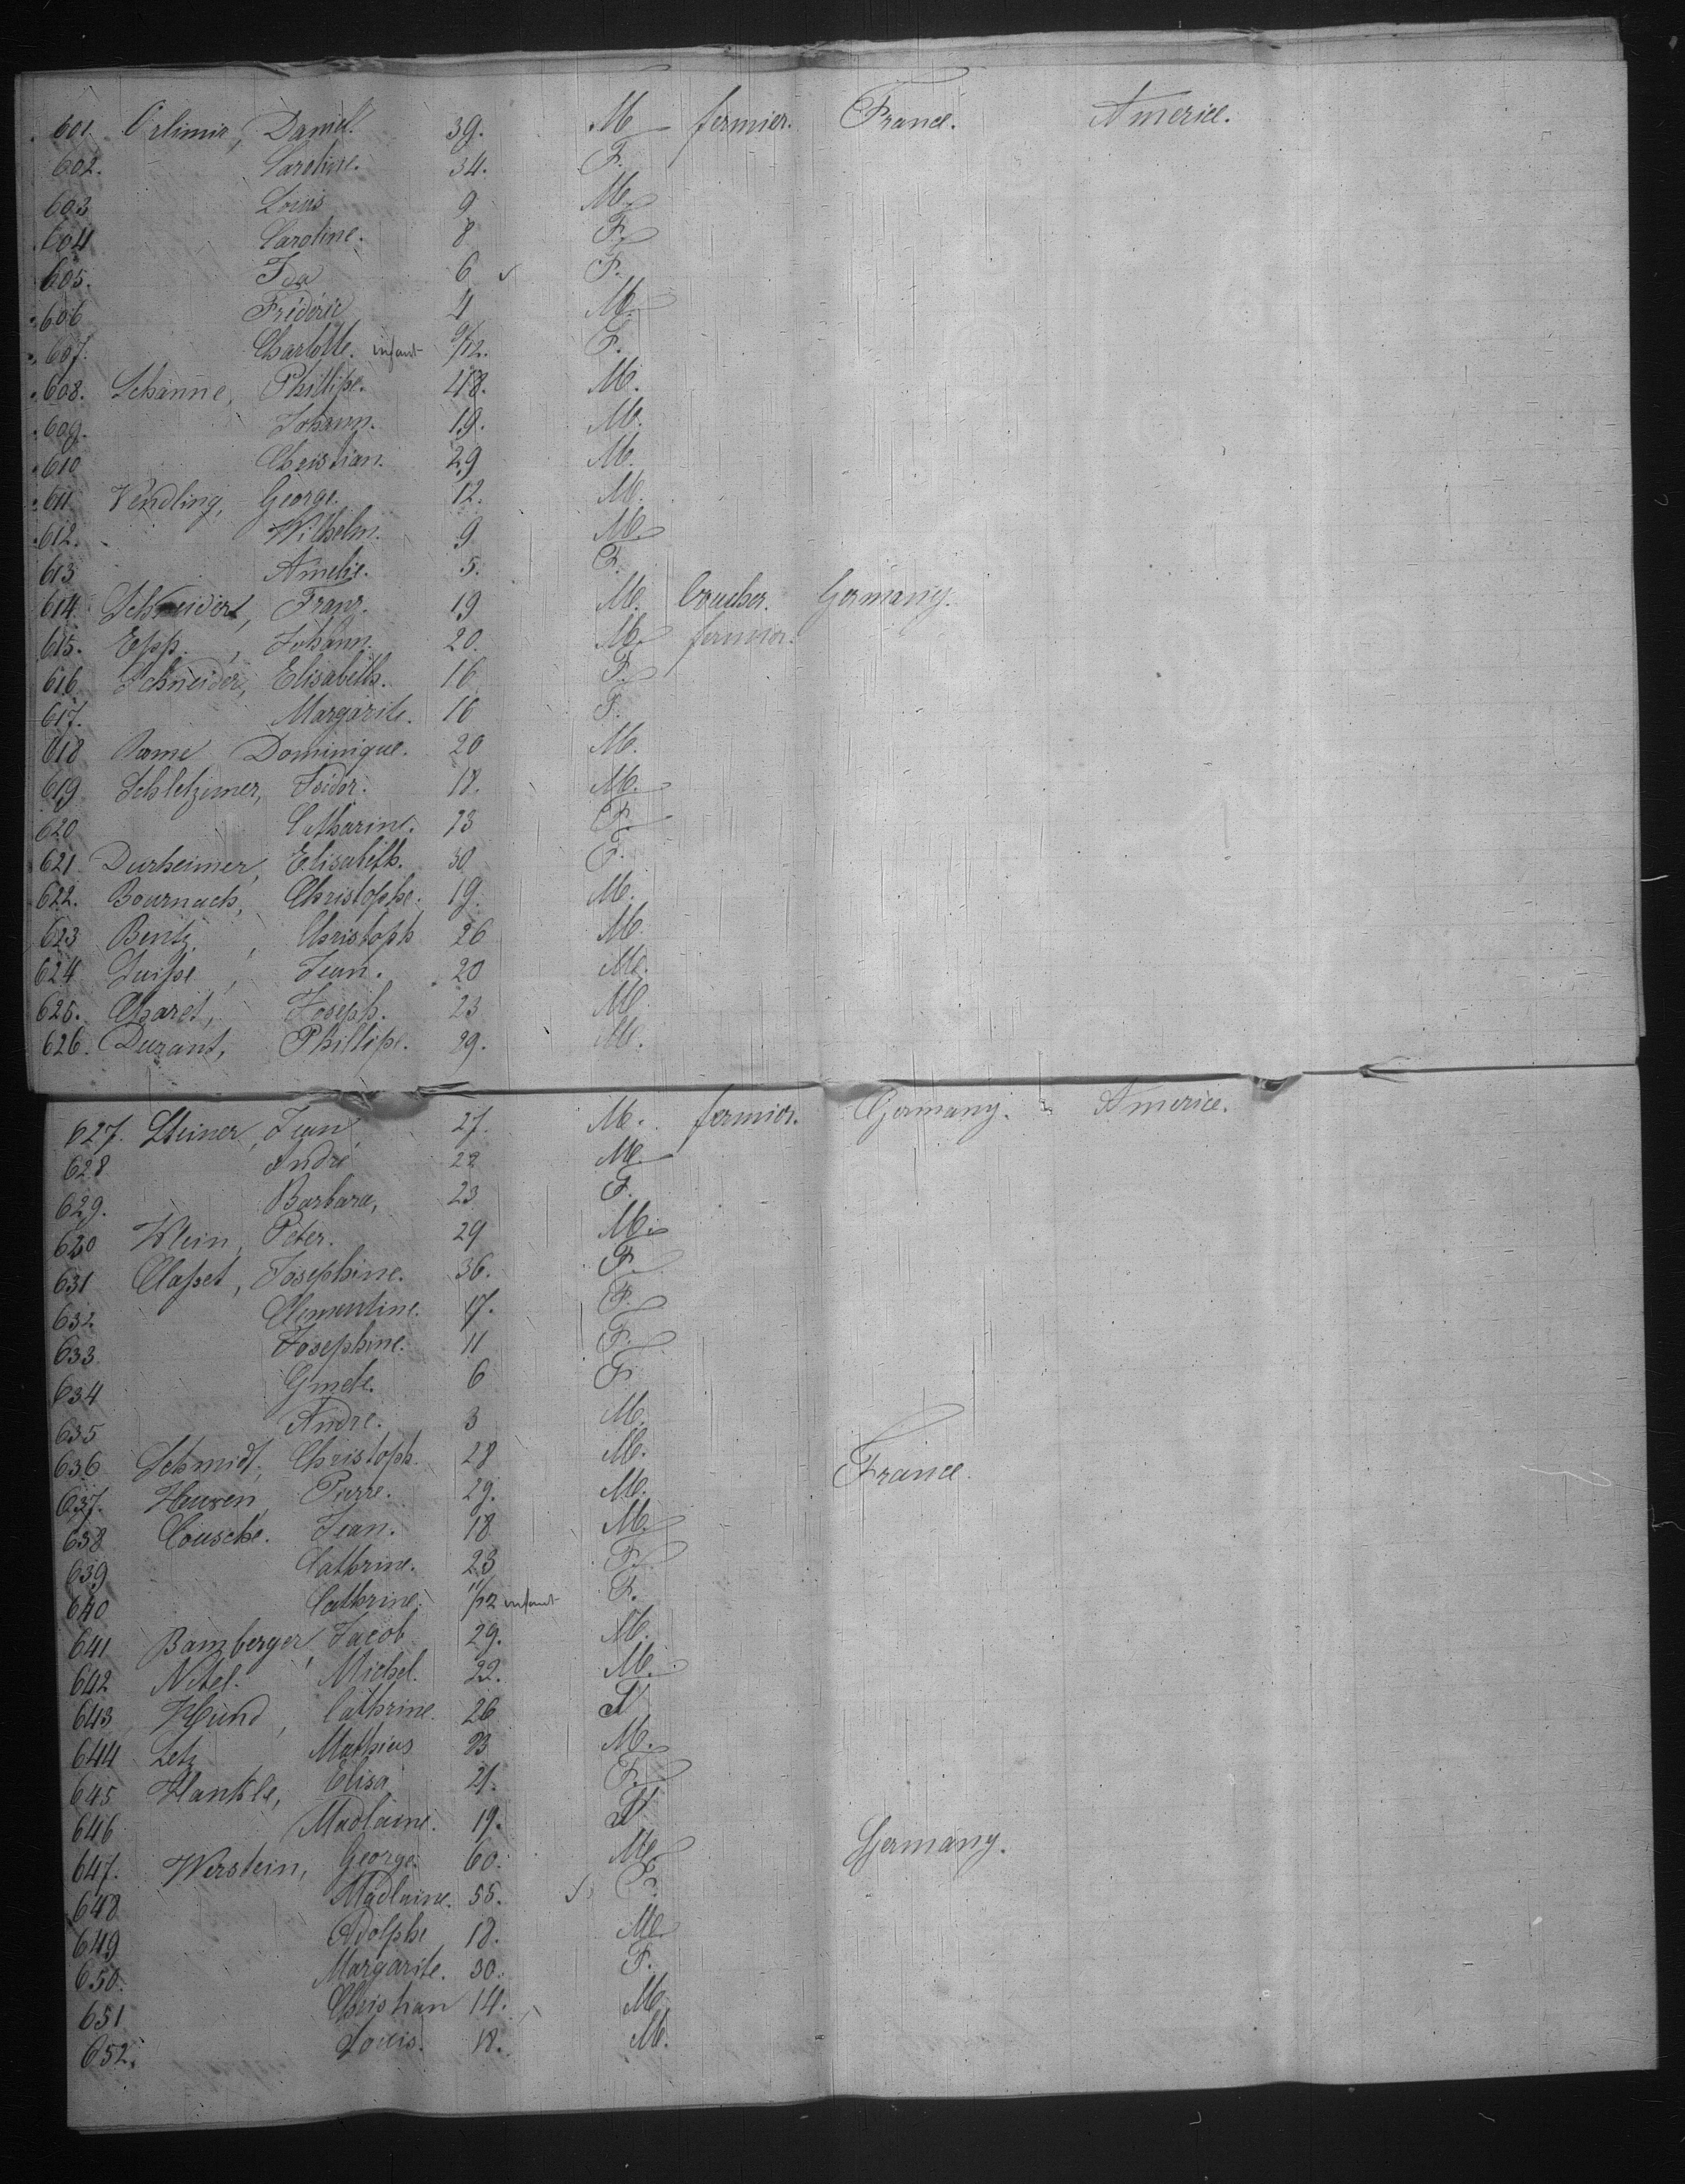 601. Orlimir, Daniel. 39. M fermier. France. Americe.
602. Caroline. 34. F.
603 Louis 9 M.
604 Caroline. 8 F.
605. Ida 6 F.
606 Fréderic 4 M.
607. Charlotte. infant 9/12. F.
608. Schanne, Phillipe. 48. M.
609. Johann. 19. M.
610 Christian. 29 M.
611 Vendling, George. 12. M.
612. Wilhelm. 9 M.
613 Amelie. 5. F.
614. Schneider, Franz. 19 M. Germany.
615. Epp, Johann. 20. M. fermier.
616. Schneider, Elisabeth. 16 F.
617. Margarite. 16 F.
618 Dominique. 20 M.
619 Schletzimer, Isidor. 18. M.
620 Catharine. 23 F.
621 Durheimer, Elisabeth. 30 F.
622. Bournach, Christophe. 19. M.
623 Bentz, Christoph 26 M.
624 Jean. 20 M.
625. Charet, Joseph. 23 M
626. Durant, Phillipe. 29. M.
627. Steiner, Jean, 27. M. fermier. Germany. Americe.
628 André 22 M.
629. Barbara, 23 F.
630 Klein, Peter. 29 M.
631 Classet, Josephine. 36. F.
632 Clementine. 17. F.
633 Josephine. 11 F.
634 6 F
635 Andre. 3 M.
636 Schmidt, Christoph. 28 M. France.
637. Heusen, Pierre. 29. M.
638 Cousche. Jean. 18 M.
639 Cathrine. 23 F.
640 Cathrine. 11/12 infant F.
641 Bamberger, Jacob 29. M.
642 Nitel. Michel. 22. M.
643 Hund, Cathrine. 26 F
644 Letz Mathieus 23 M.
645 Hankle, Elisa 21. F.
646 Madlaine. 19. F
647. Werstein, George. 60. M. Germany.
648 Madlaine. 55. F.
649 Adolphe 18. M.
650. Margarite. 30. F.
651 Christian 14. M.
652. Louis. 18. M.